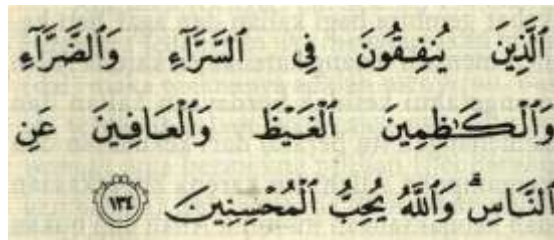 ٱلَّذِينَ يُنفِقُونَ فِى ٱلسَّرَّآءِ وَٱلضَّرَّآءِ
وَٱلْكَٰظِمِينَ ٱلْغَيْظَ وَٱلْعَافِينَ عَنِ
ٱلنَّاسِ ۗ وَٱللَّهُ يُحِبُّ ٱلْمُحْسِنِينَ ١٣٤